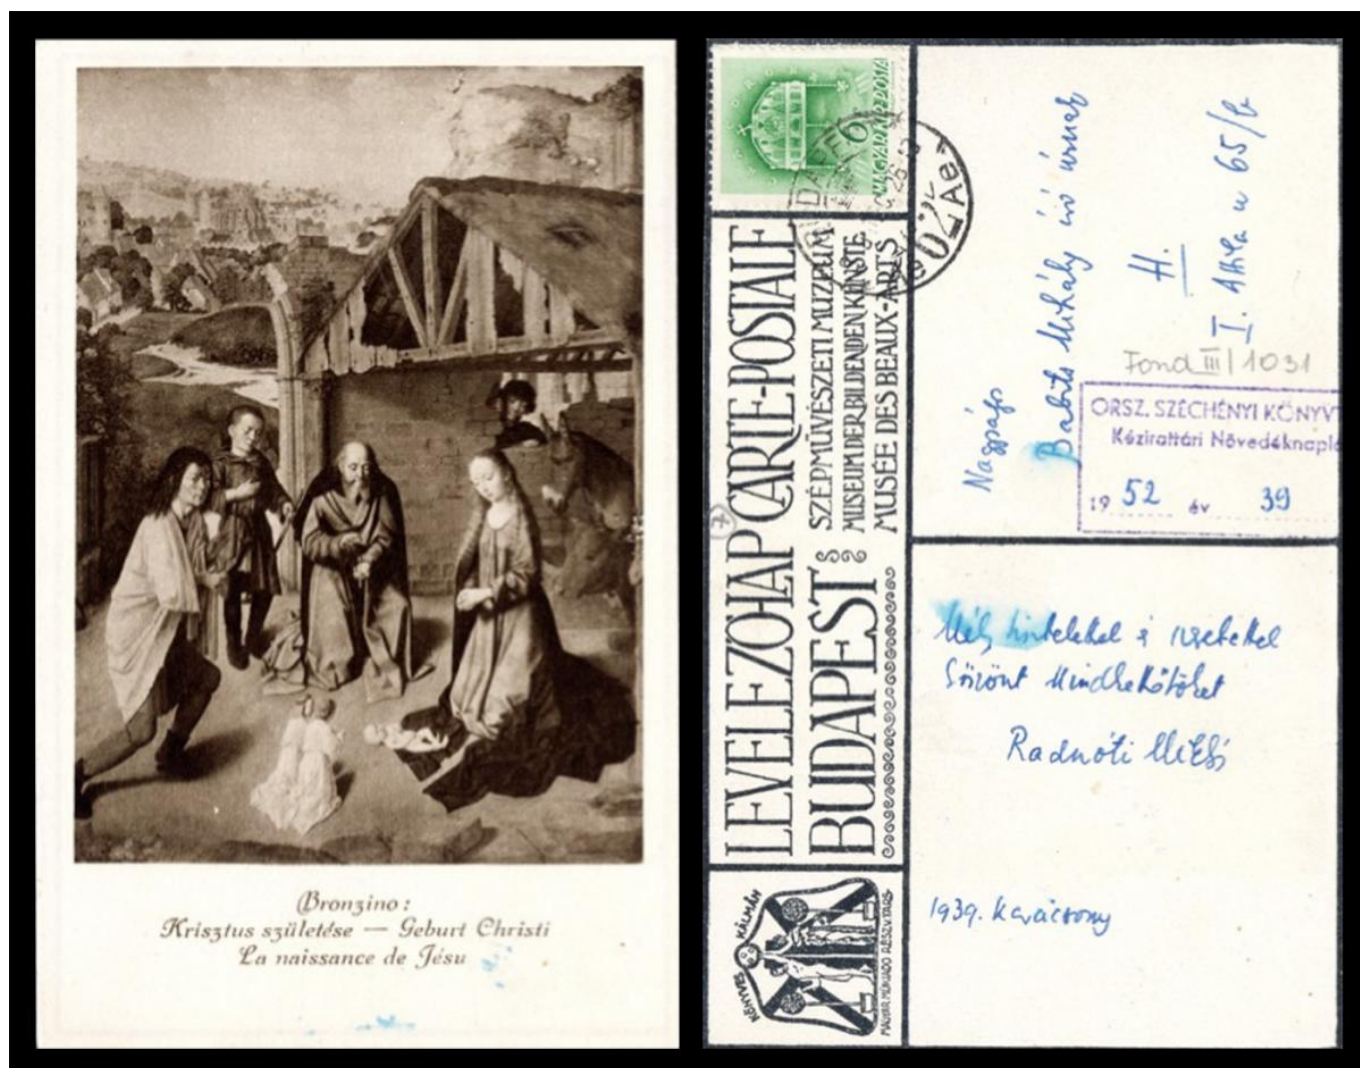 Bronzino:
Krisztus születése — Geburt Christi
La naissance de Jésu
MAGYAR KIR. POSTA
6
LEVELEZŐLAP CARTE-POSTALE
BUDAPEST
SZÉPMŰVÉSZETI MUZEUM
MUSEUM DER BILDENDEN KÜNSTE
MUSÉE DES BEAUX-ARTS
7
KÖNYVES KÁLMÁN
MAGYAR MŰKIADÓ RÉSZV.TÁRS
Nagyságos
Babits Mihály író úrnak
H.
I. Attila u 65/b
Fond III/1031
ORSZ. SZÉCHÉNYI KÖNYVT
Kézirattári Növedéknapló
1952 év 39
Mély tisztelettel s szeretettel
köszönt Mindkettőtöket
Radnóti Miklós
1939. Karácsony